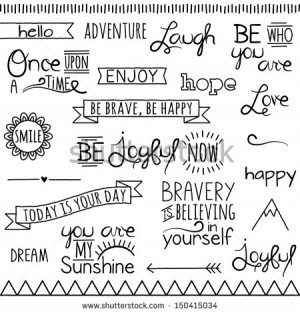 hello
ADVENTURE
Laugh
BE WHO
you are
Once UPON
A TIME
ENJOY
hope
Love
BE BRAVE, BE HAPPY
SMILE
BE joyful NOW
shutterstock
happy
TODAY IS YOUR DAY
BRAVERY
IS BELIEVING
in
yourself
you are
MY
Sunshine
DREAM
joyful
www.shutterstock.com · 150415034